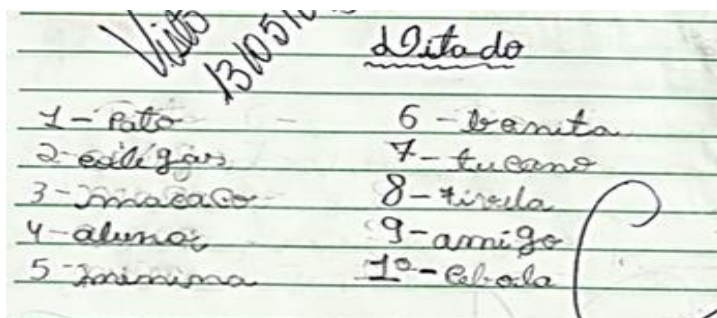 Visto
13/05/
Ditado
1 - Pato
2 - colégas
3 - macaco
4 - alunos
5 - minina
6 - bonita
7 - tucano
8 - tirela
9 - amigo
10 - Cebola